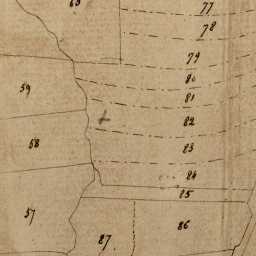 63
77
78
79
80
59
81
82
58
83
84
85
57
86
87